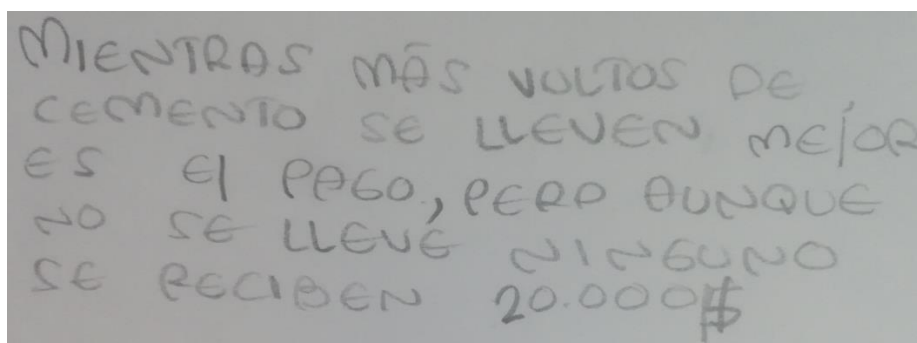 MIENTRAS MÁS VOLTOS DE
CEMENTO SE LLEVEN MEJOR
ES El PAGO, PERO AUNQUE
NO SE LLEVE NINGUNO
SE RECIBEN 20.000$